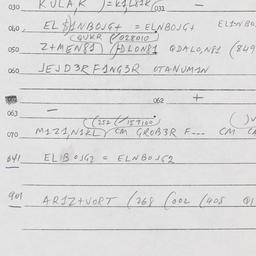 030 KULAK )=K1L81K /031 —
040 EL$1NBOJG+ = ELNBOJG+ EL1NBO
(QUKR (/028010)
050 Z+MEN81 (HDLON81 QDALON81 (849
060 JEJD3R F1NG3R OTANUM1N
062 +
063 —
(252 (/157100)
070 M1Z1,N1KL) CM GROB3R F--- CM
641 ELIBOJG2 = ELNBOJG2
901 AR1Z+VORT (268 (002 (405